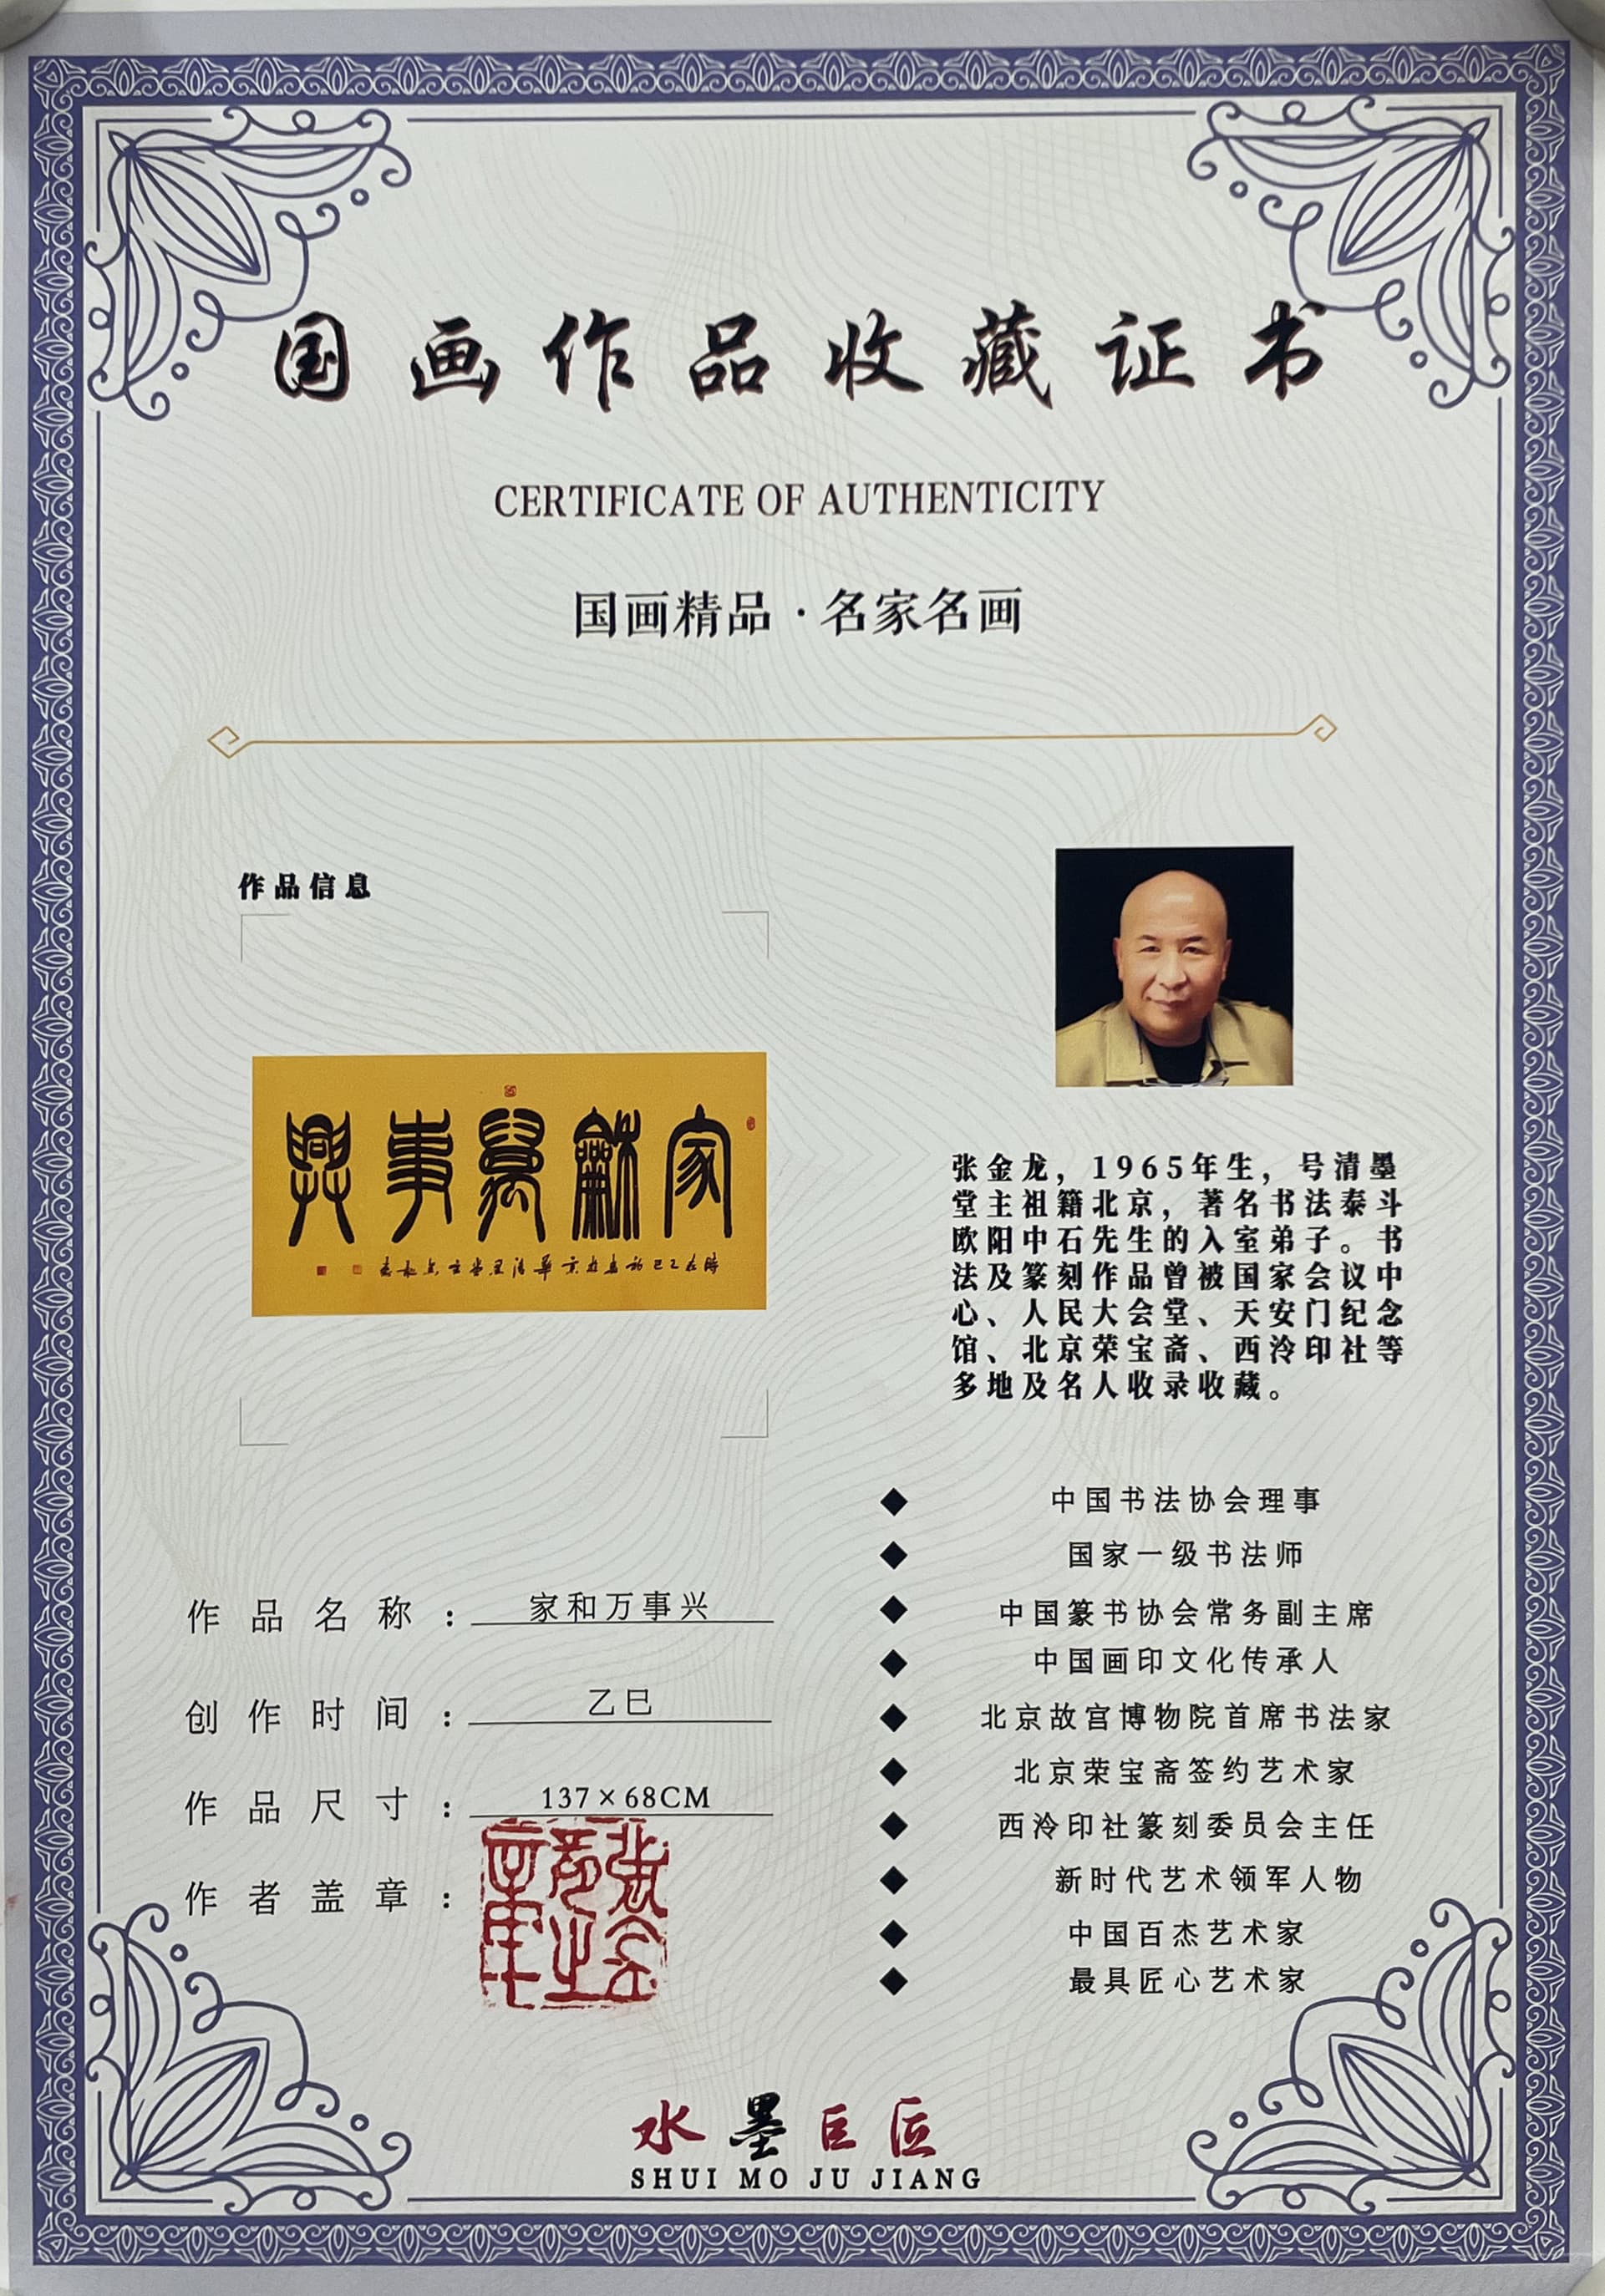 国画作品收藏证书
CERTIFICATE OF AUTHENTICITY
国画精品·名家名画
作品信息
興事萬龢家
张金龙，1965年生，号清墨
堂主祖籍北京，著名书法泰斗
欧阳中石先生的入室弟子。书
法及篆刻作品曾被国家会议中
心、人民大会堂、天安门纪念
馆、北京荣宝斋、西泠印社等
多地及名人收录收藏。
作品名称：家和万事兴
创作时间：乙巳
作品尺寸：137×68CM
作者盖章：
中国书法协会理事
国家一级书法师
中国篆书协会常务副主席
中国画印文化传承人
北京故宫博物院首席书法家
北京荣宝斋签约艺术家
西泠印社篆刻委员会主任
新时代艺术领军人物
中国百杰艺术家
最具匠心艺术家
水墨巨匠
SHUI MO JU JIANG